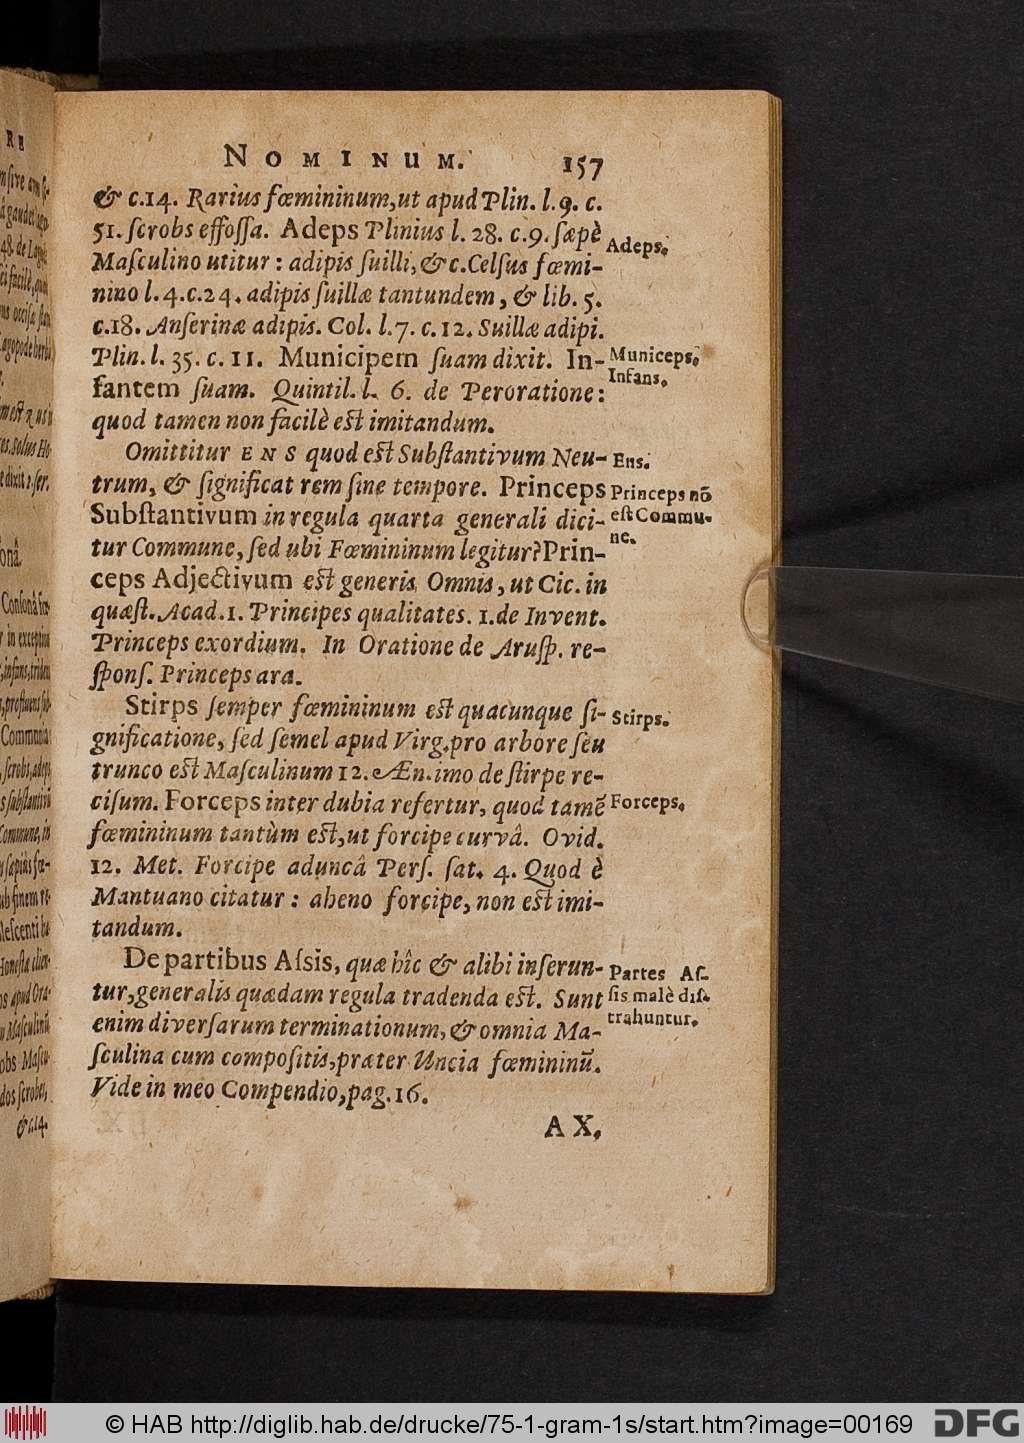 NOMINUM. 157
& c.14. Rariùs fœmininum, ut apud Plin. l.9. c.
51. ſcrobs effoſſa. Adeps Plinius l. 28. c.9. ſæpè
Adeps.
Maſculino utitur: adipis ſuilli, &c. Celſus fœmi-
nino l.4.c.24. adipis ſuillæ tantundem, & lib. 5.
c.18. Anſerinæ adipis. Col. l.7. c.12. Suillæ adipi.
Plin. l. 35. c. 11. Municipem ſuam dixit. In-
Municeps.
fantem ſuam. Quintil. l. 6. de Peroratione:
Infans.
quod tamen non facilè eſt imitandum.
Omittitur ENS quod eſt Subſtantivum Neu-
Ens.
trum, & ſignificat rem ſine tempore. Princeps
Princeps nõ
Subſtantivum in regula quarta generali dici-
eſt Commu-
tur Commune, ſed ubi Fœmininum legitur? Prin-
ne.
ceps Adjectivum eſt generis Omnis, ut Cic. in
quæſt. Acad.1. Principes qualitates. 1. de Invent.
Princeps exordium. In Oratione de Aruſp. re-
ſponſ. Princeps ara.
Stirps ſemper fœmininum eſt quacunque ſi-
Stirps.
gnificatione, ſed ſemel apud Virg. pro arbore ſeu
trunco eſt Maſculinum 12. Æn. imo de ſtirpe re-
ciſum. Forceps inter dubia refertur, quod tamẽ
Forceps.
fœmininum tantùm eſt, ut forcipe curvâ. Ovid.
12. Met. Forcipe aduncâ Perſ. ſat. 4. Quod è
Mantuano citatur: aheno forcipe, non eſt imi-
tandum.
De partibus Aſsis, quæ hîc & alibi inſerun-
Partes Aſ-
tur, generalis quædam regula tradenda eſt. Sunt
ſis malè diſ-
enim diverſarum terminationum, & omnia Ma-
trahuntur.
ſculina cum compoſitis, præter Uncia fœmininũ.
Vide in meo Compendio, pag.16.
AX,
© HAB http://diglib.hab.de/drucke/75-1-gram-1s/start.htm?image=00169
DFG